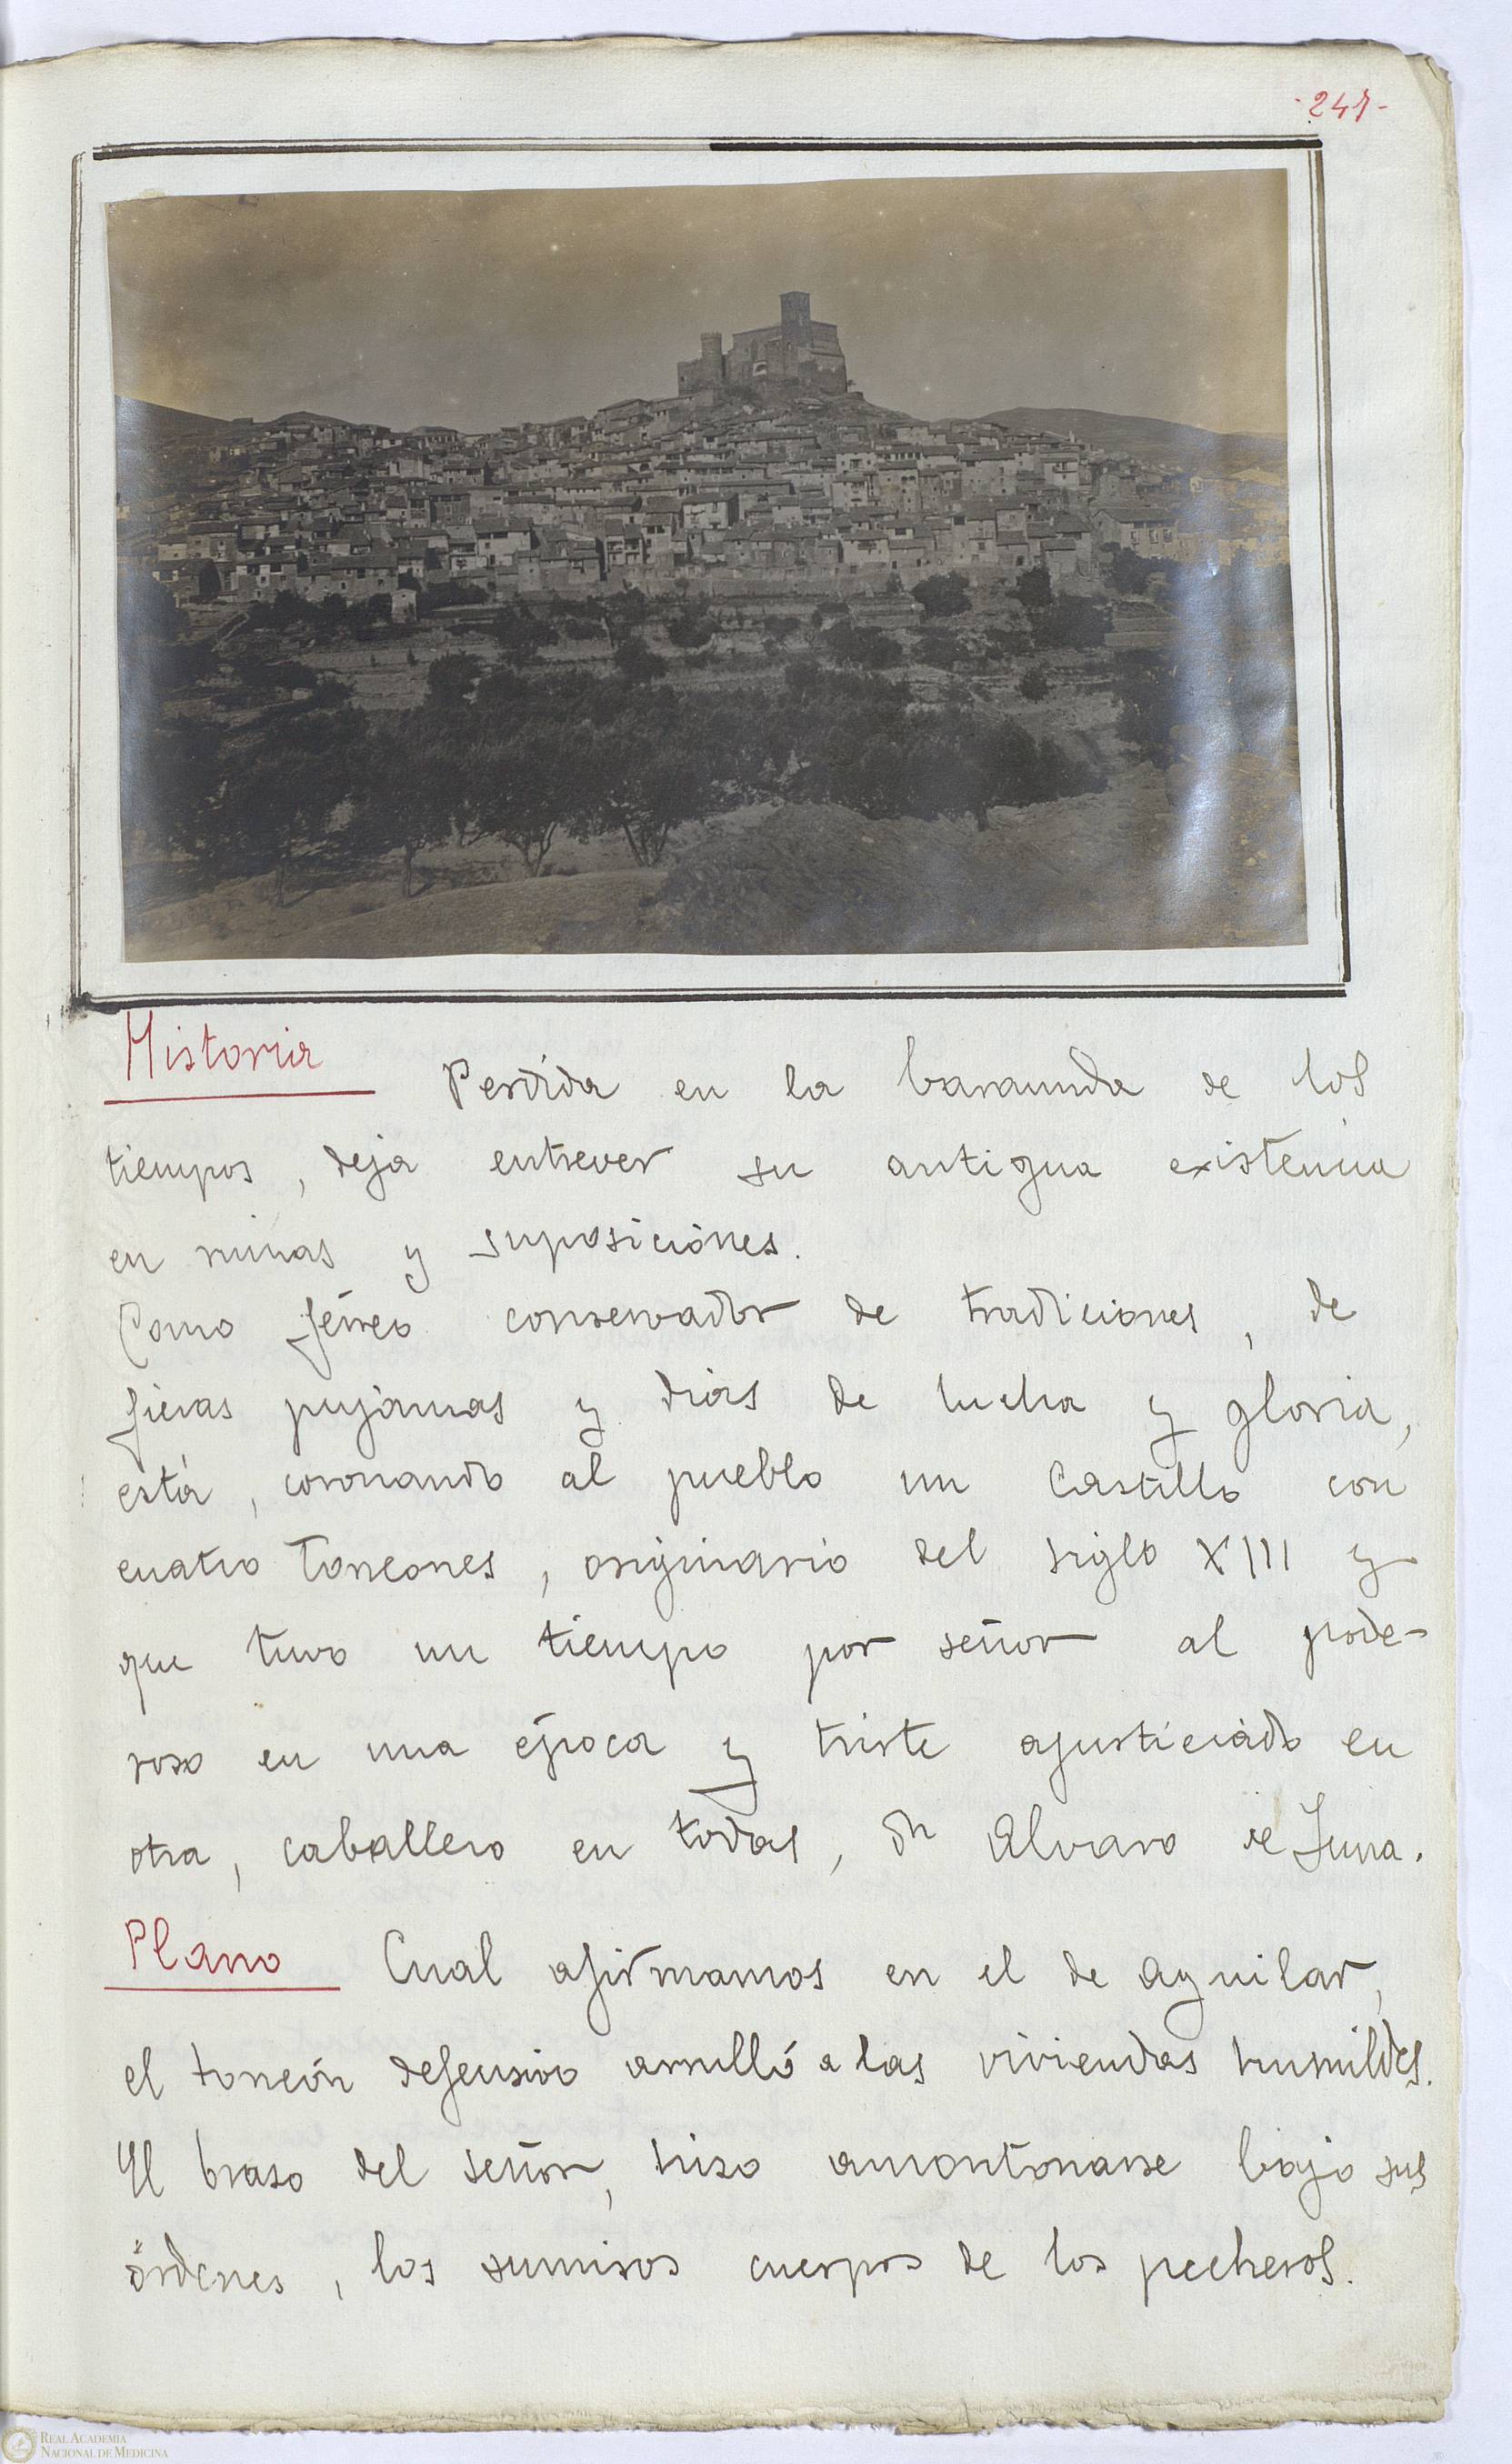 -247-
Historia Perdida en la baraunda de los
tiempos, deja entrever su antigua existencia
en ruinas y suposiciones.
Como férreo conservador de tradiciones, de
fieras pujanzas y dias de lucha y gloria,
está, coronando al pueblo un Castillo con
cuatro Torreones, originario del siglo XIII y
que tuvo un tiempo por señor al pode-
roso en una época y triste ajusticiado en
otra, caballero en todas, Dn Alvaro de Luna.
Plano Cual afirmamos en el de Aguilar,
el torreón defensivo arrulló a las viviendas humildes.
El braso del señor, hizo amontonarse bajo sus
órdenes, los sumisos cuerpos de los pecheros.
REAL ACADEMIA
NACIONAL DE MEDICINA